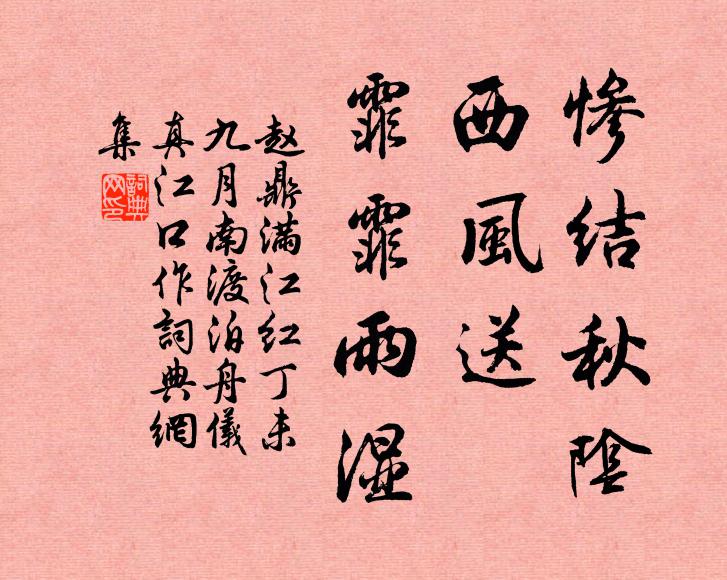 惨结秋陰
西風送
霏霏雨湿
赵鼎满江红丁未
九月南渡泊舟儀
真江口作詞典網
集
詞典
网印